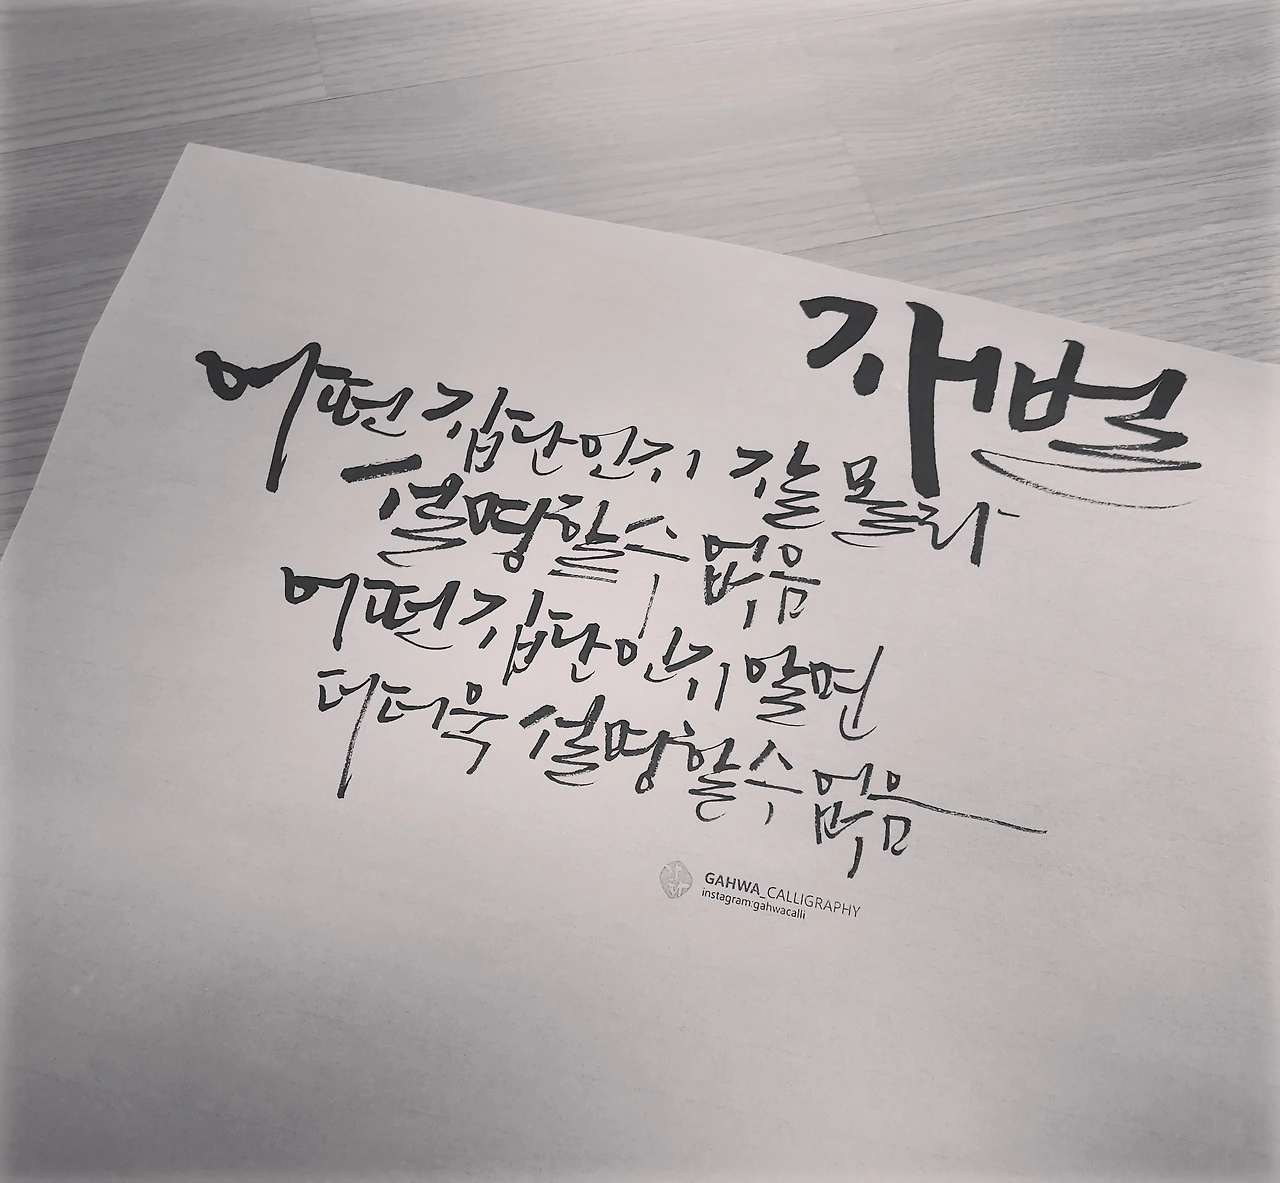 재벌
어떤 집단인지 잘 몰라
설명할 수 없음
어떤 집단인지 알면
더더욱 설명할 수 없음
GAHWA_CALLIGRAPHY
instagram:gahwacalli